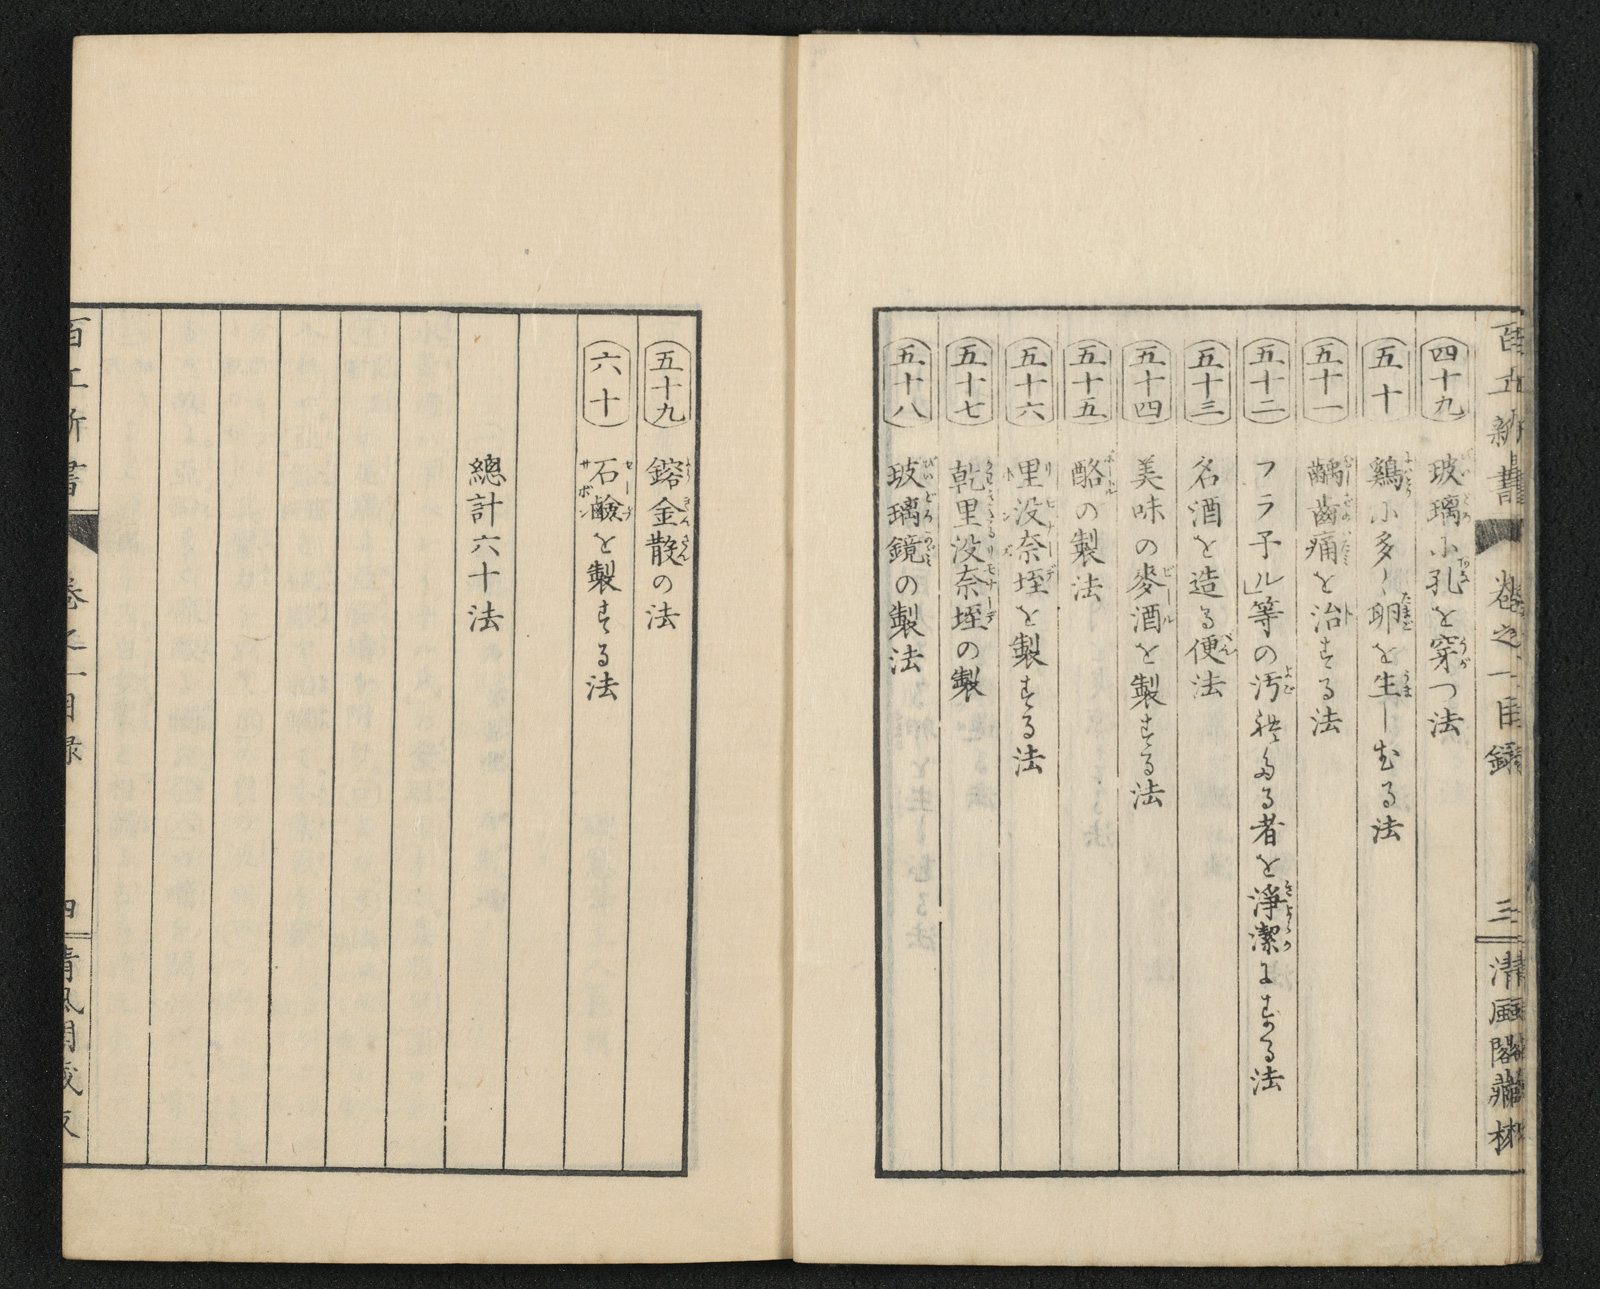 百工新書 卷之一目録 三 清風閣藏梓
四十九 玻璃小孔を穿つ法
五十 鷄小多く卵を生しむる法
五十一 齲齒痛を治する法
五十二 フラ子ル等の汚穢たる者を淨潔にする法
五十三 名酒を造る便法
五十四 美味の麥酒を製する法
五十五 酪の製法
五十六 里没奈垤を製する法
五十七 乾里没奈垤の製
五十八 玻璃鏡の製法
五十九 鎔金散の法
六十 石鹸を製する法
總計六十法
百工新書 卷之一目録 四 清風閣藏